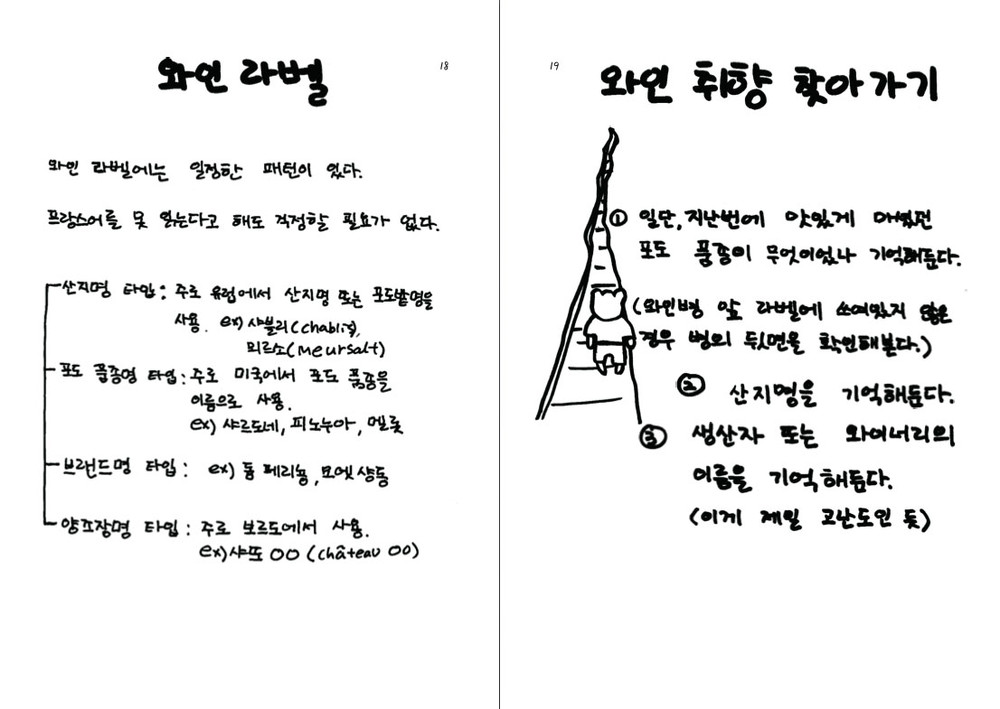 18
와인 라벨
와인 라벨에는 일정한 패턴이 있다.
프랑스어를 못 읽는다고 해도 걱정할 필요가 없다.
산지명 타입: 주로 유럽에서 산지명 또는 포도밭명을
사용. ex) 샤블리(chablis),
뫼르소(Meursalt)
포도 품종명 타입: 주로 미국에서 포도 품종을
이름으로 사용.
ex) 샤르도네, 피노누아, 멜롯
브랜드명 타입: ex) 돔 페리뇽, 모엣 샹동
양조장명 타입: 주로 보르도에서 사용.
ex) 샤또 OO (château OO)
19
와인 취향 찾아가기
① 일단, 지난번에 맛있게 마셨던
포도 품종이 무엇이었나 기억해둔다.
(와인병 앞 라벨에 쓰여있지 않은
경우 병의 뒷면을 확인해본다.)
② 산지명을 기억해둔다.
③ 생산자 또는 와이너리의
이름을 기억해둔다.
(이게 제일 고난도인 듯)